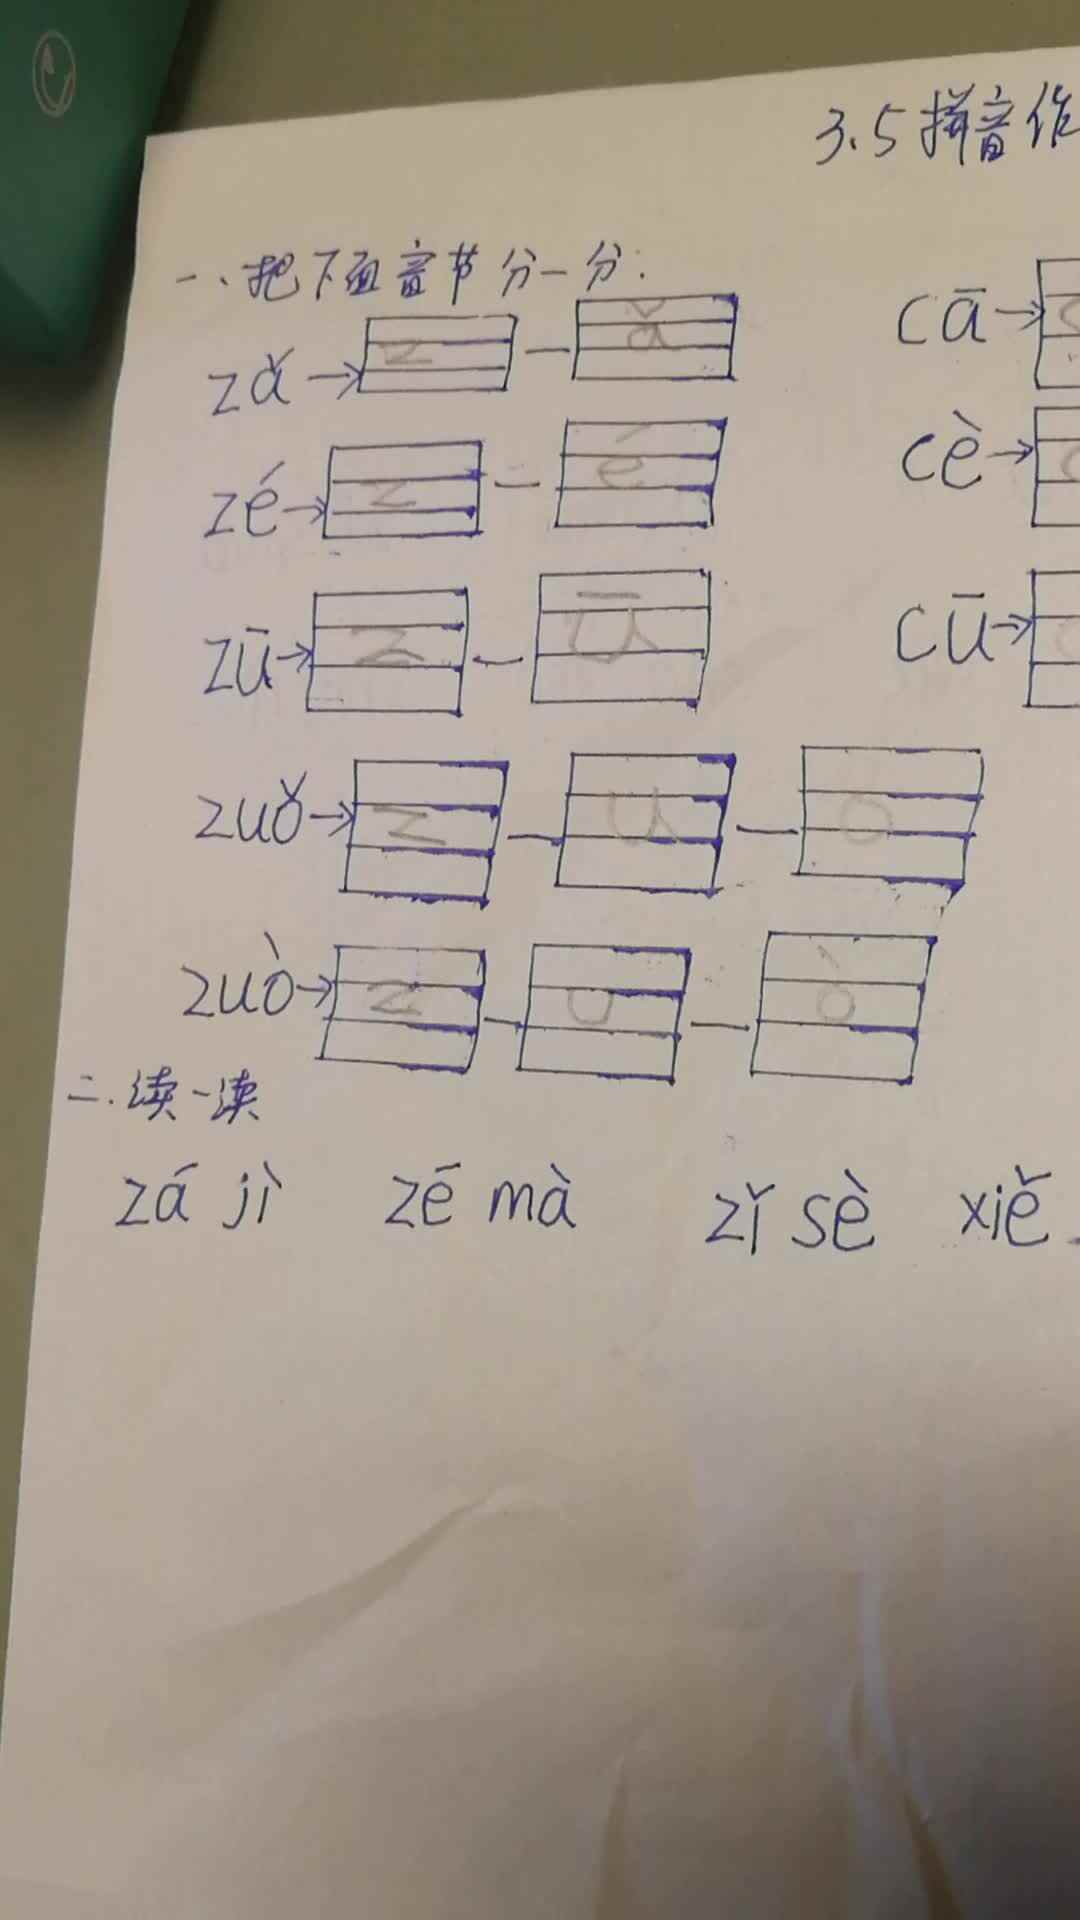 3.5拼音作
一、把下面音节分一分:
zǎ→ z — ǎ cā→
zé→ z — é cè→
zū→ z — ū cū→
zuǒ→ z — u — o
zuò→ z — u — ò
二.读一读
zá jì zé mà zǐ sè xiě